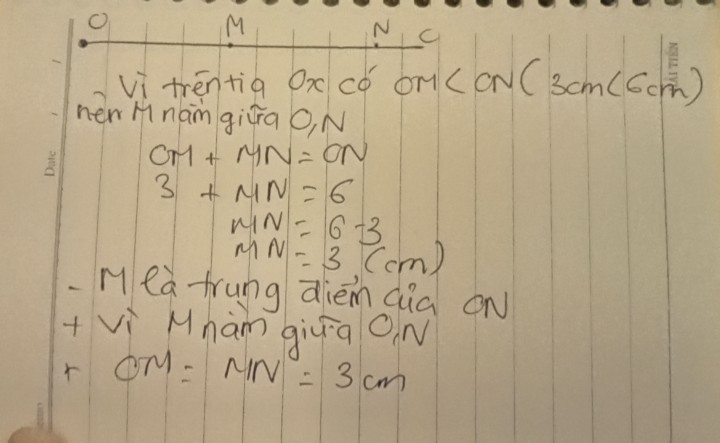 O M N C
Vì trên tia Ox có OM < ON (3cm < 6cm)
nên M nằm giữa O,N
OM + MN = ON
3 + MN = 6
MN = 6-3
MN = 3 (cm)
- M là trung điểm của ON
+ Vì M nằm giữa O,N
+ OM = MN = 3cm
Date